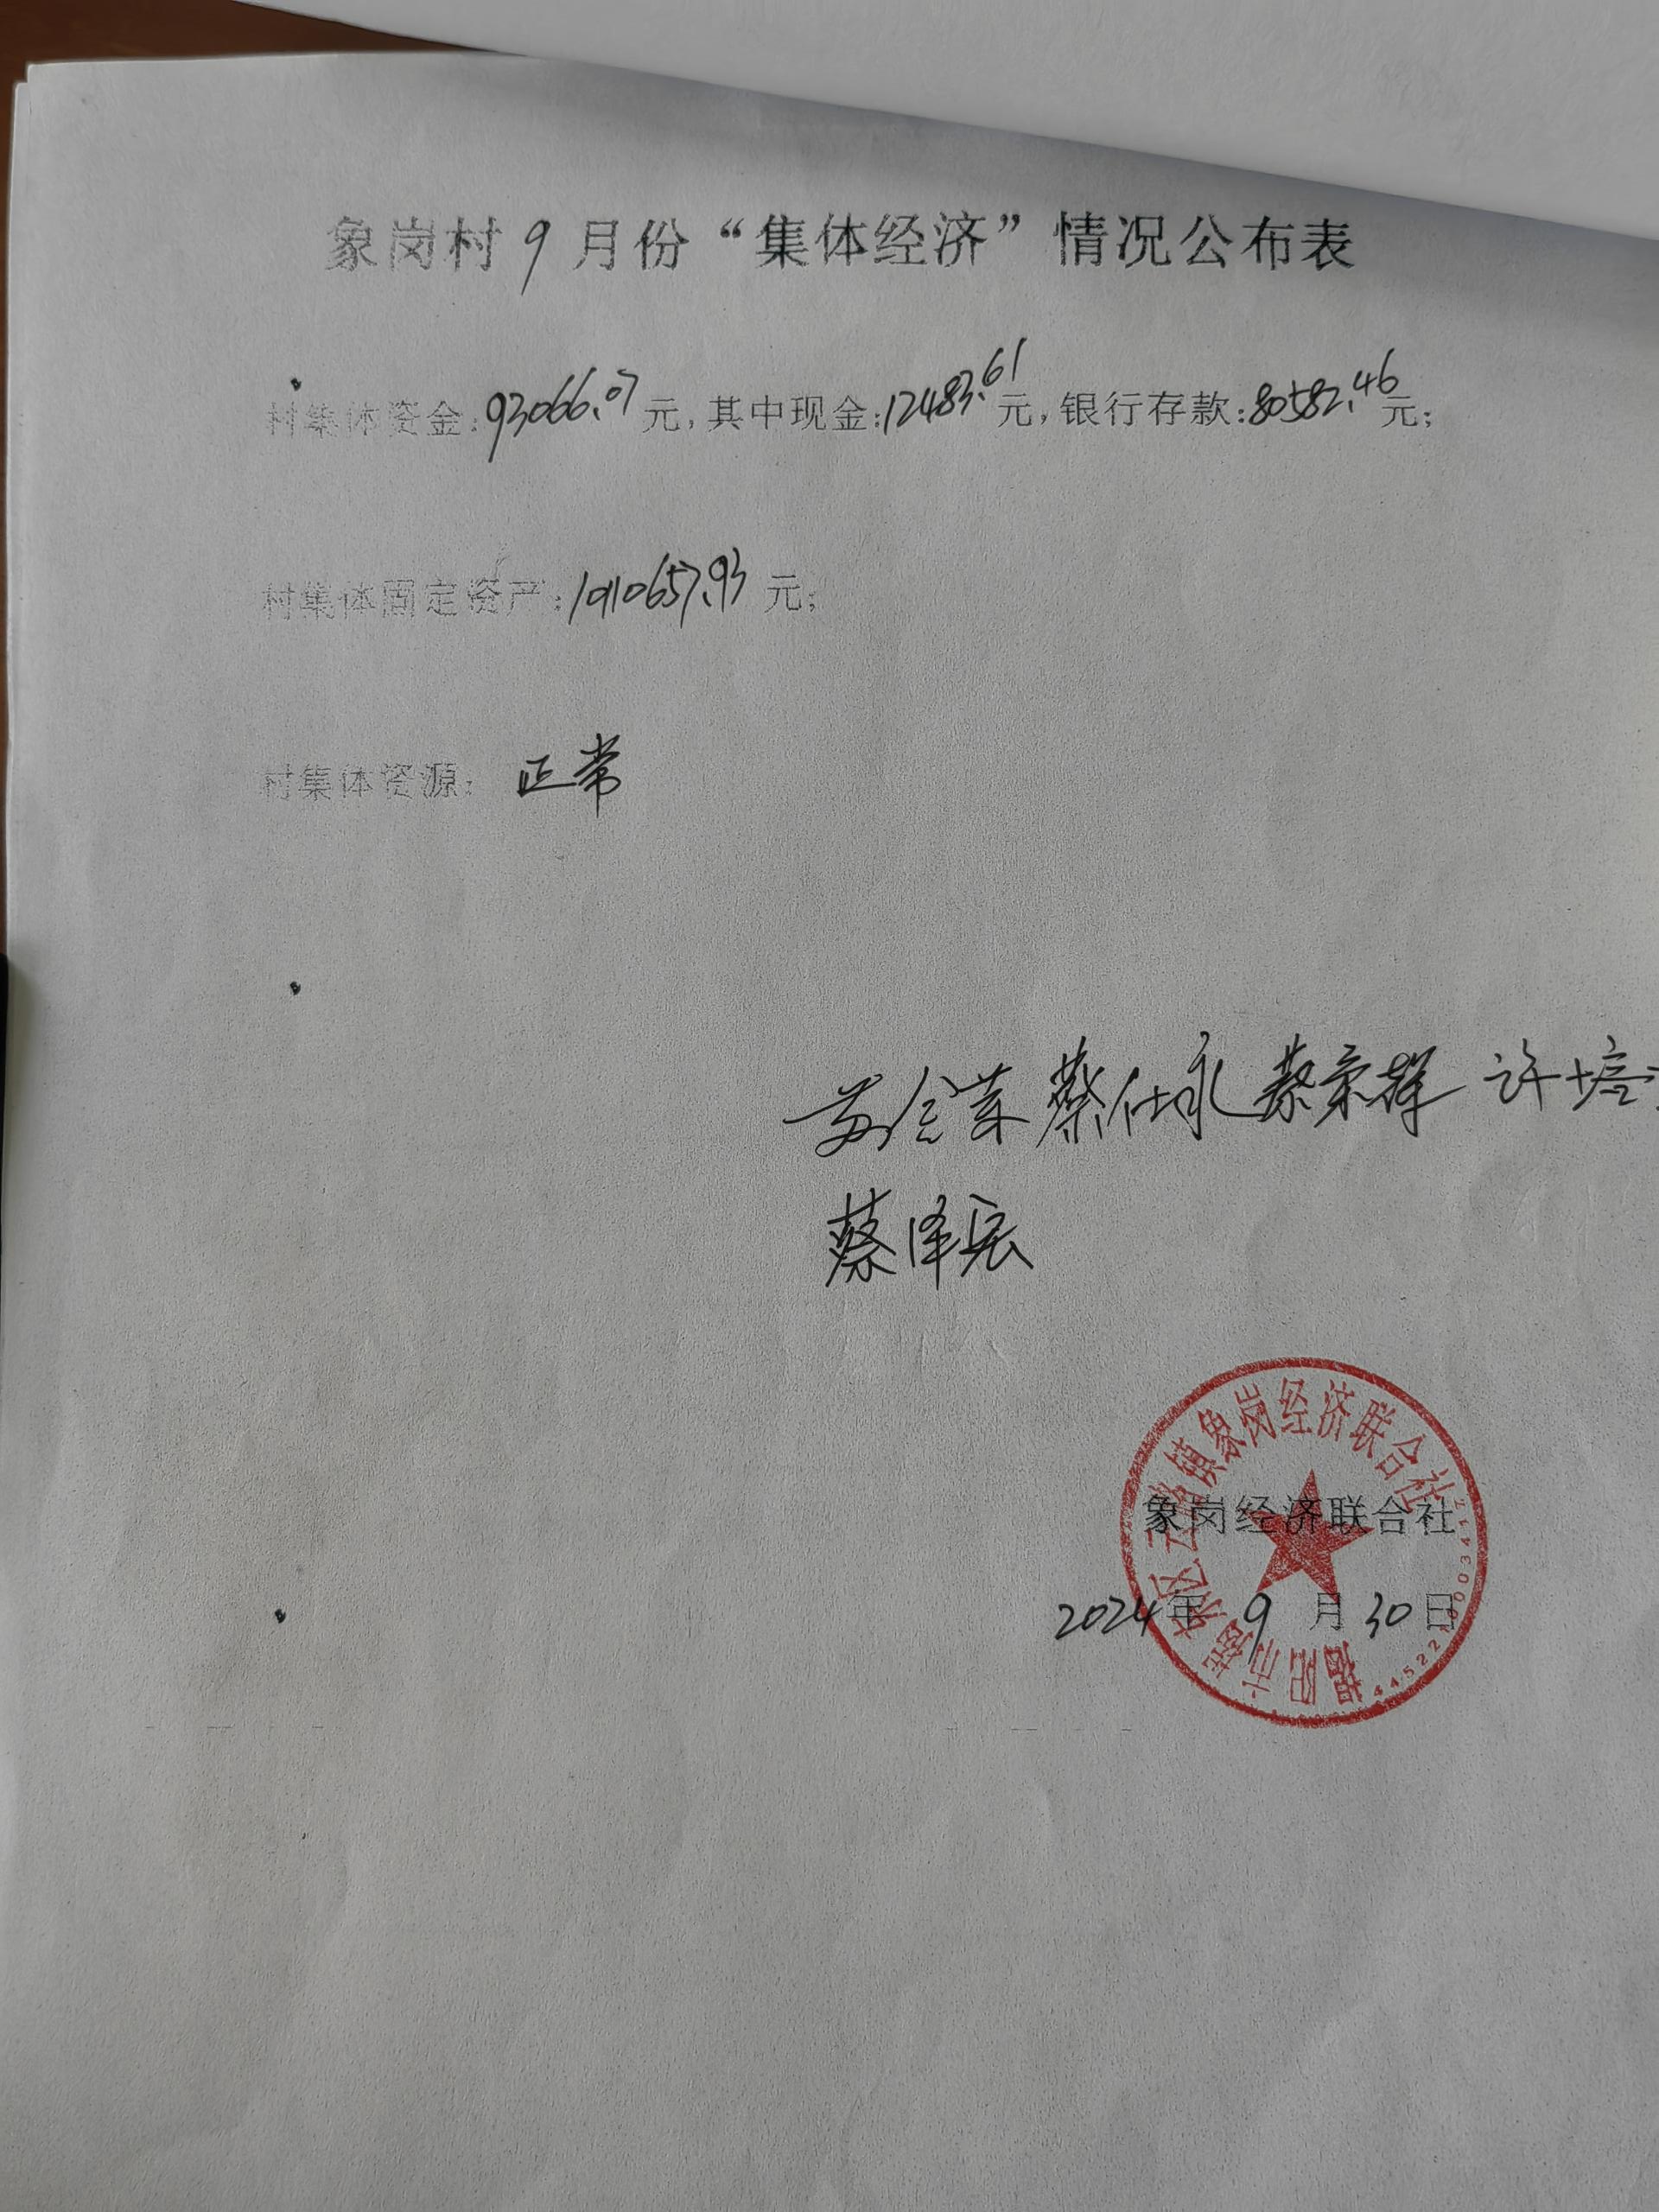 象岗村9月份“集体经济”情况公布表
村集体资金:93066.07元,其中现金:12483.61元,银行存款:80582.46元;
村集体固定资产:10110657.93元;
村集体资源: 正常
蔡仕永 许培
蔡泽宏
揭阳市揭东区云路镇象岗经济联合社
象岗经济联合社
2024年9月30日